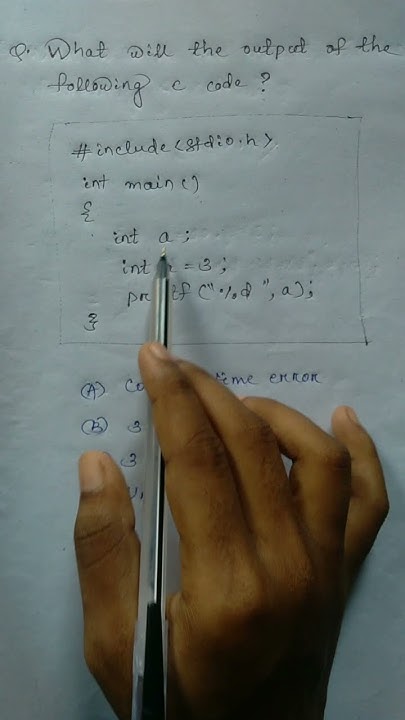 Q. What will the output of the
following c code ?
#include<stdio.h>
int main()
{
int a ;
int = 3 ;
("%d", a);
}
(A) error
(B) 3
3